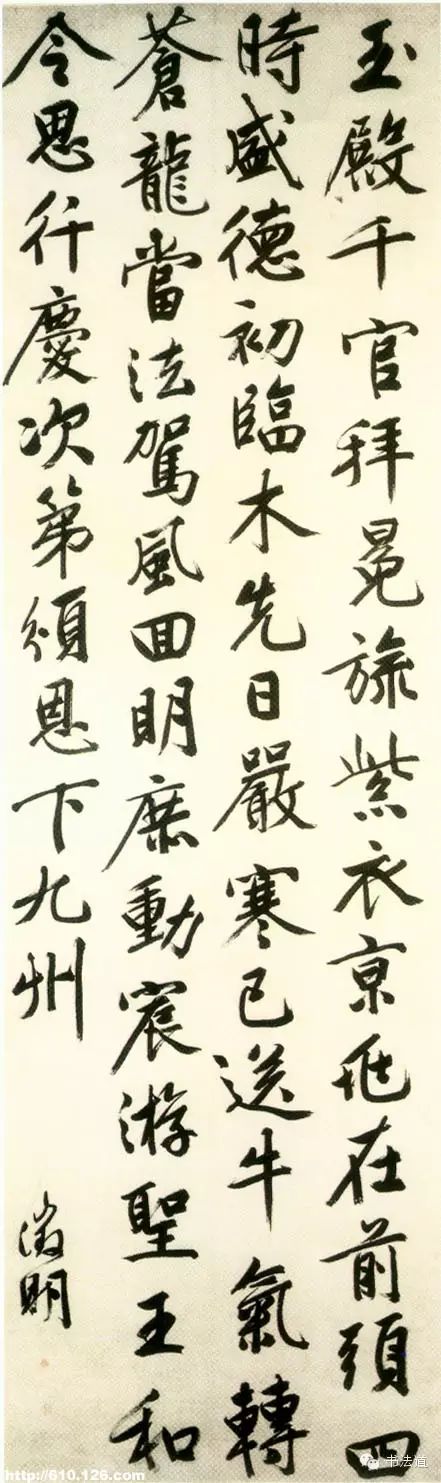 玉殿千官拜冕旒紫衣京兆在前頭四
時盛德初臨木先日嚴寒已送牛氣轉
蒼龍當法駕風回明庶動宸游聖王和
令思行慶次第頒恩下九州
徵明
书法道
http://610.126.com/